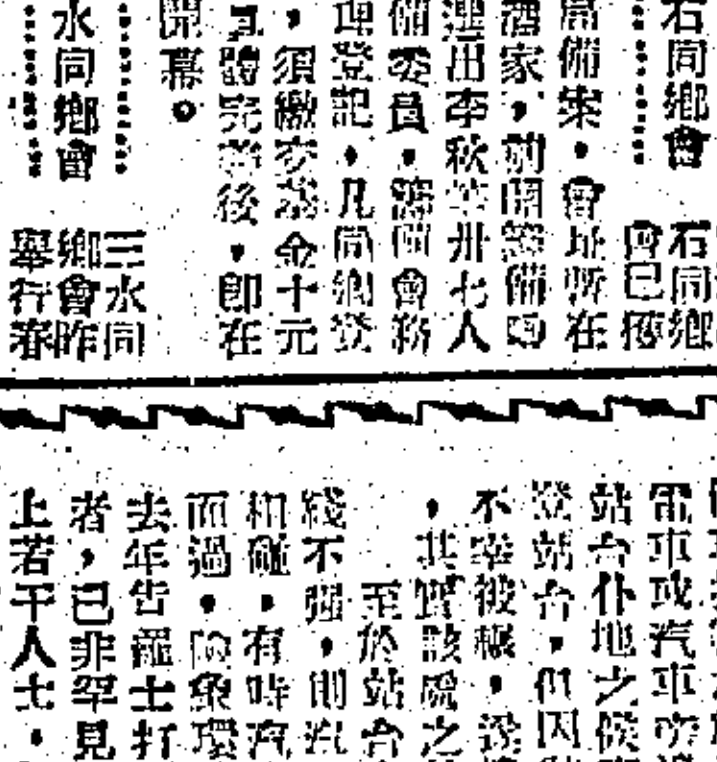 石同鄉會
石同鄉
會已
局備案，會址所在
酒家，前開籌備
選出李秋 卅七人
備委員，籌備會務
理登記，凡同鄉登
，須繳交基金十元
完 後，即在
開幕。
水同鄉會
三水同
鄉會昨
舉行春
電車或汽車
站台仆地之
登站台，但因
不幸被
，其實該處之
至於站台
綫不強，則汽
相碰，有時汽
而過，險象環
去年告羅士打
者，已非罕見
上若干人士，